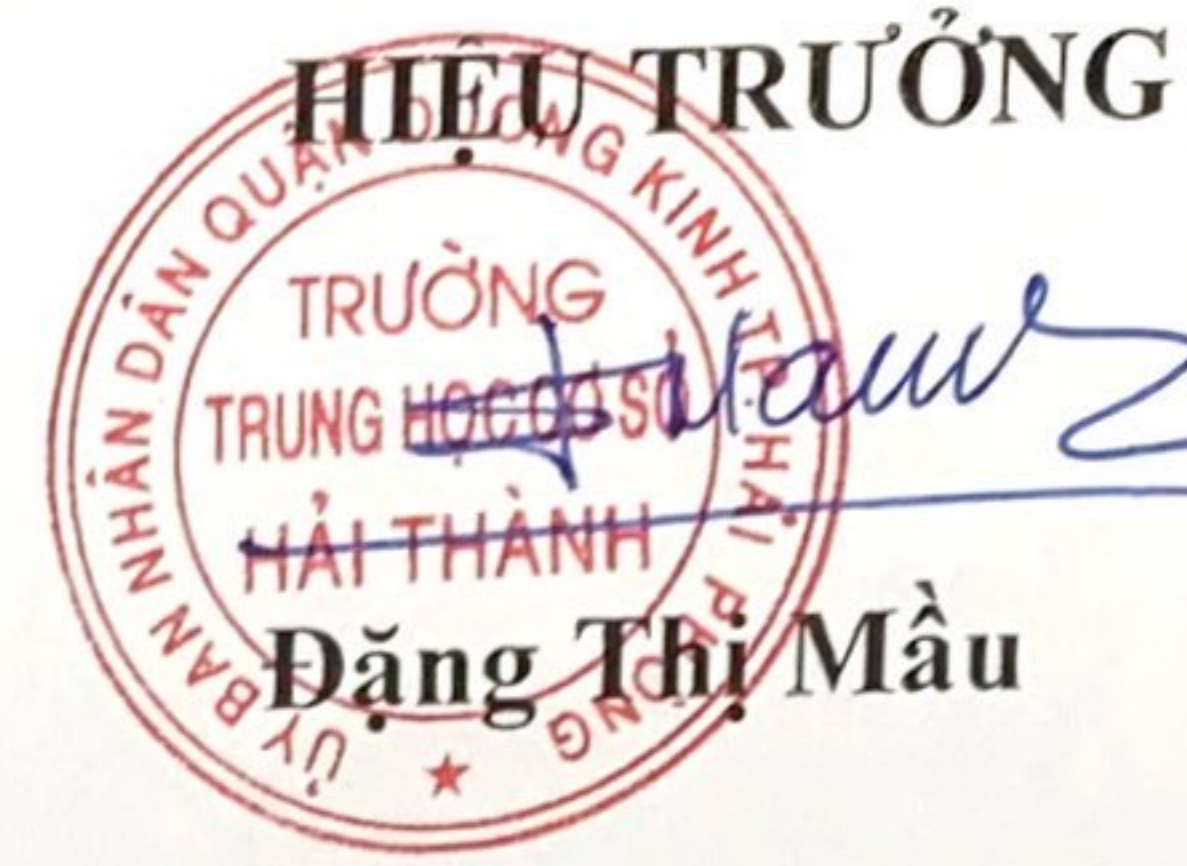 HIỆU TRƯỞNG
ỦY BAN NHÂN DÂN QUẬN DƯƠNG KINH TP. HẢI PHÒNG
TRƯỜNG
TRUNG HỌC CƠ SỞ
HẢI THÀNH
Đặng Thị Mầu